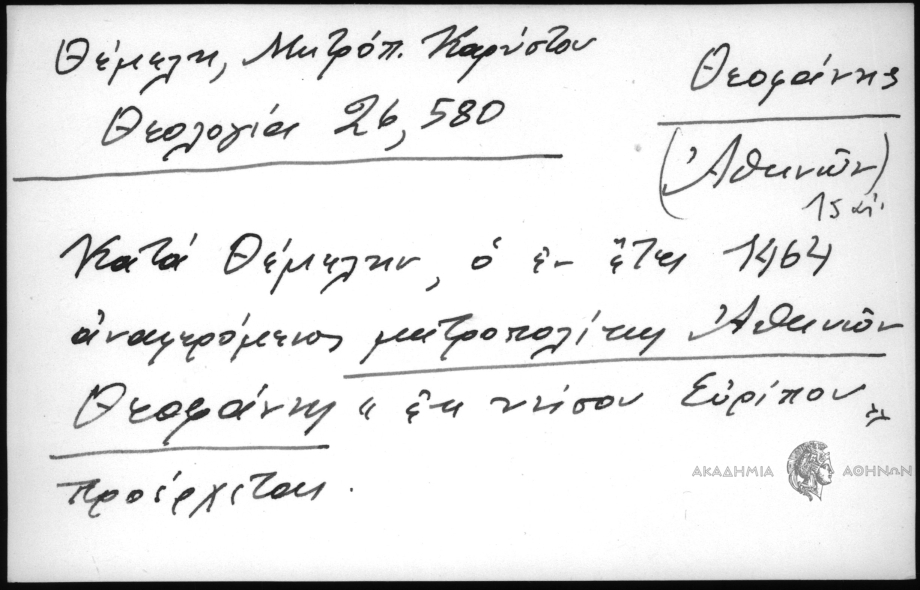 Θέμελη, Μητρόπ. Καρύστου
Θεολογία 26, 580
Θεοφάνης
(Ἀθηνῶν)
15 αἰ.
Κατά Θέμελην, ὁ ἐν ἔτει 1464
ἀναφερόμενος μητροπολίτης Ἀθηνῶν
Θεοφάνης "ἐκ νήσου Εὐρίπου"
προέρχεται.
ΑΚΑΔΗΜΙΑ ΑΘΗΝΩΝ